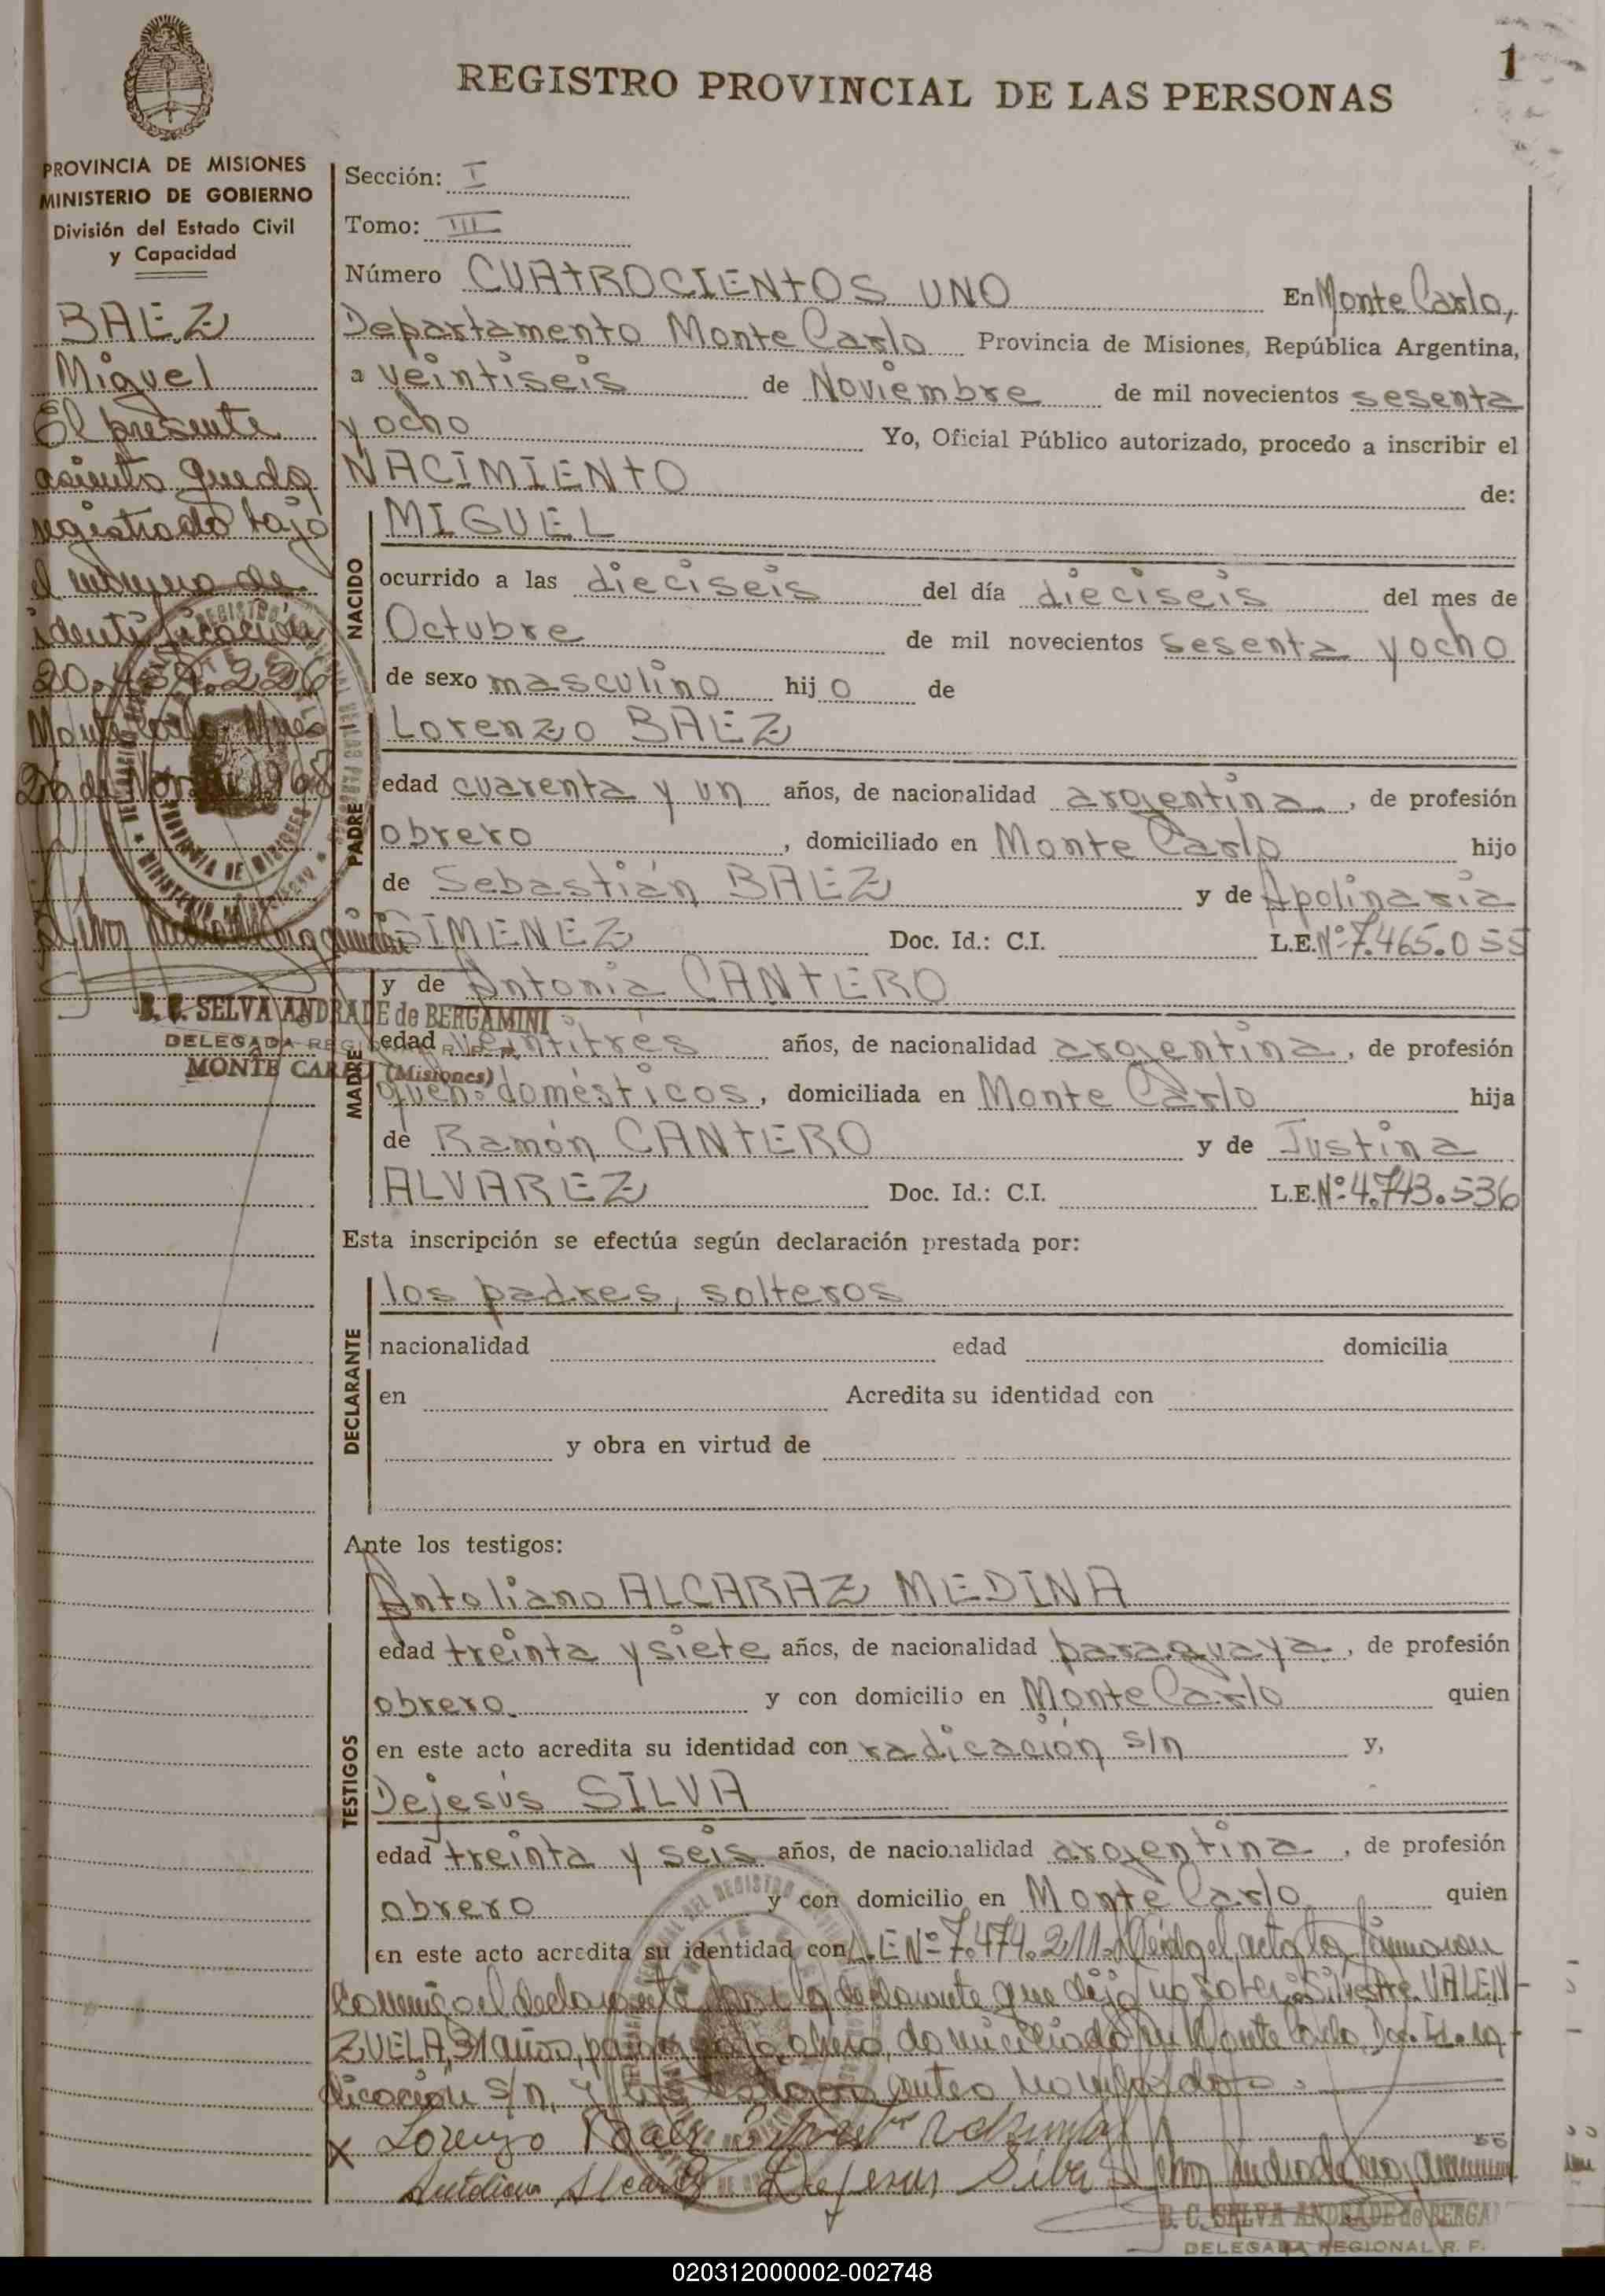 1
REGISTRO PROVINCIAL DE LAS PERSONAS
PROVINCIA DE MISIONES
MINISTERIO DE GOBIERNO
División del Estado Civil
y Capacidad
BAEZ
Miguel
El presente
asiento queda
registrado bajo
el número de
identificación
Monte Carlo, Mnes
26 de Nov. de 1968
B. C. SELVA ANDRADE de BERGAMINI
DELEGADA REGIONAL R. P.
MONTE CARLO (Misiones)
Sección: I
Tomo: III
Número CUATROCIENTOS UNO En Monte Carlo,
Departamento Monte Carlo Provincia de Misiones, República Argentina,
a veintiseis de Noviembre de mil novecientos sesenta
y ocho Yo, Oficial Público autorizado, procedo a inscribir el
NACIMIENTO de:
NACIDO
MIGUEL
ocurrido a las dieciseis del día dieciseis del mes de
Octubre de mil novecientos sesenta y ocho
de sexo masculino hijo de
PADRE
Lorenzo BAEZ
edad cuarenta y un años, de nacionalidad argentina, de profesión
obrero, domiciliado en Monte Carlo hijo
de Sebastián BAEZ y de Apolinaria
GIMENEZ Doc. Id.: C.I. L.E. Nº 7.465.055
MADRE
y de Antonia CANTERO
edad veintitrés años, de nacionalidad argentina, de profesión
queh. domésticos, domiciliada en Monte Carlo hija
de Ramón CANTERO y de Justina
ALVAREZ Doc. Id.: C.I. L.E. Nº 4.743.536
Esta inscripción se efectúa según declaración prestada por:
DECLARANTE
los padres, solteros
nacionalidad edad domicilia
en Acredita su identidad con
y obra en virtud de
Ante los testigos:
TESTIGOS
Antoliano ALCARAZ MEDINA
edad treinta y siete años, de nacionalidad paraguaya, de profesión
obrero. y con domicilio en Monte Carlo quien
en este acto acredita su identidad con radicación s/n y,
Dejesús SILVA
edad treinta y seis años, de nacionalidad argentina, de profesión
obrero y con domicilio en Monte Carlo quien
en este acto acredita su identidad con L.E Nº 7.474.211. Leída el acta la firmaron
conmigo el declarante por la declarante que dijo no saber: Silvestre VALEN-
ZUELA, 31 años, paraguayo, obrero, domiciliado en Monte Carlo, Doc. Id. ra-
dicación s/n, y los testigos antes nombrados.
X Lorenzo Baez
Antoliano Alcaraz Dejesus Silva
B. C. SELVA ANDRADE de BERGA
DELEGADA REGIONAL R. P.
020312000002-002748